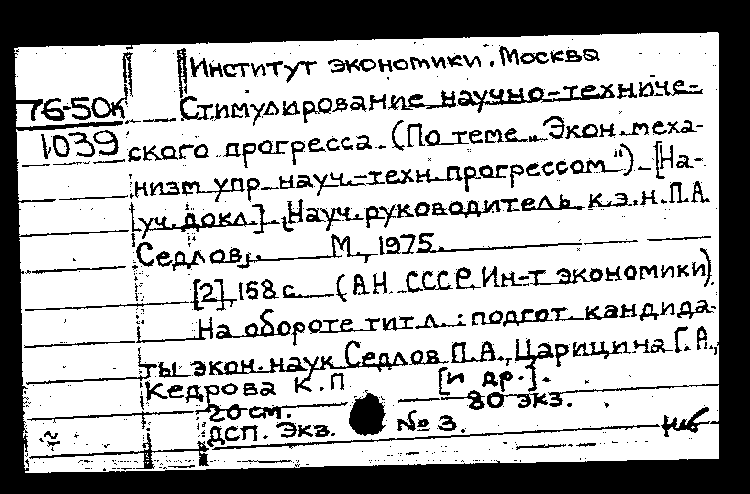 Институт экономики. Москва
76-50к Стимулирование научно-техниче-
1039 ского прогресса. (По теме „Экон. меха-
низм упр. науч.-техн. прогрессом"). [На-
уч. докл.]. [Науч. руководитель к.э.н. П.А.
Седлов]. М., 1975.
[2], 158 с. (АН СССР. Ин-т экономики)
На обороте тит. л.: подгот. кандида-
ты экон. наук Седлов П.А., Царицина Г.А.,
Кедрова К.П [и др.].
20 см. 80 экз.
ДСП. Экз. № 3.